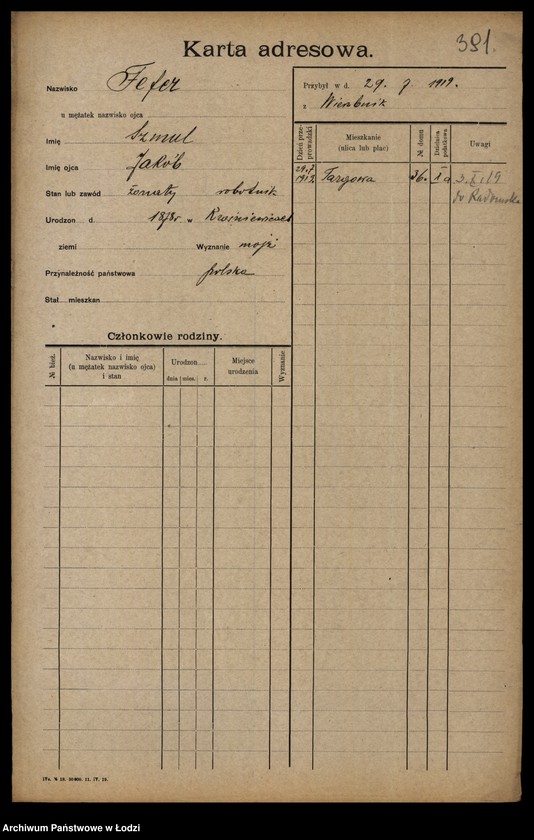 381.
Karta adresowa.
Nazwisko Fefer
u mężatek nazwisko ojca
Imię Szmul
Imię ojca Jakób
Stan lub zawód żonaty robotnik
Urodzon d. 1878 r. w
ziemi Wyznanie mojż
Przynależność państwowa polska
Stał. mieszkan
Członkowie rodziny.
№ bież.
Nazwisko i imię
(u mężatek nazwisko ojca)
i stan
Urodzon
dnia mies. r.
Miejsce
urodzenia
Wyznanie
Przybył w d. 29. 7 1919.
z Wierzbnik
Dzień prze-
prowadzki
Mieszkanie
(ulica lub plac)
№ domu
Dzielnica
podatkowa
Uwagi
29.7
1919 Targowa 36. I a 3.X.19
do Radomska
IVa. № 10. 50000. 11. IV. 19.
Archiwum Państwowe w Łodzi